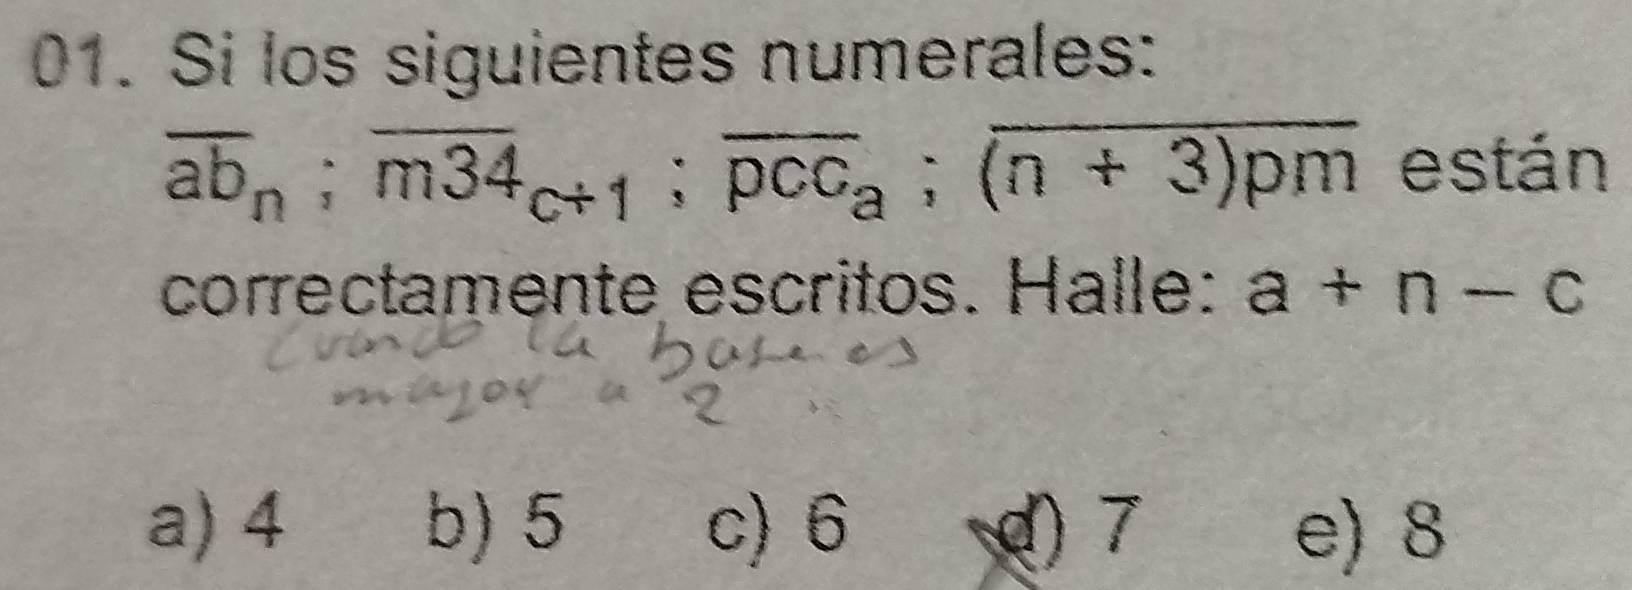 01. Si los siguientes numerales:
ab̅ₙ ; m34̅ c+1 ; pcc̅ₐ ; (n + 3)pm̅ están
correctamente escritos. Halle: a + n – c
Cuando la base es
mayor a 2
a) 4 b) 5 c) 6 d) 7 e) 8